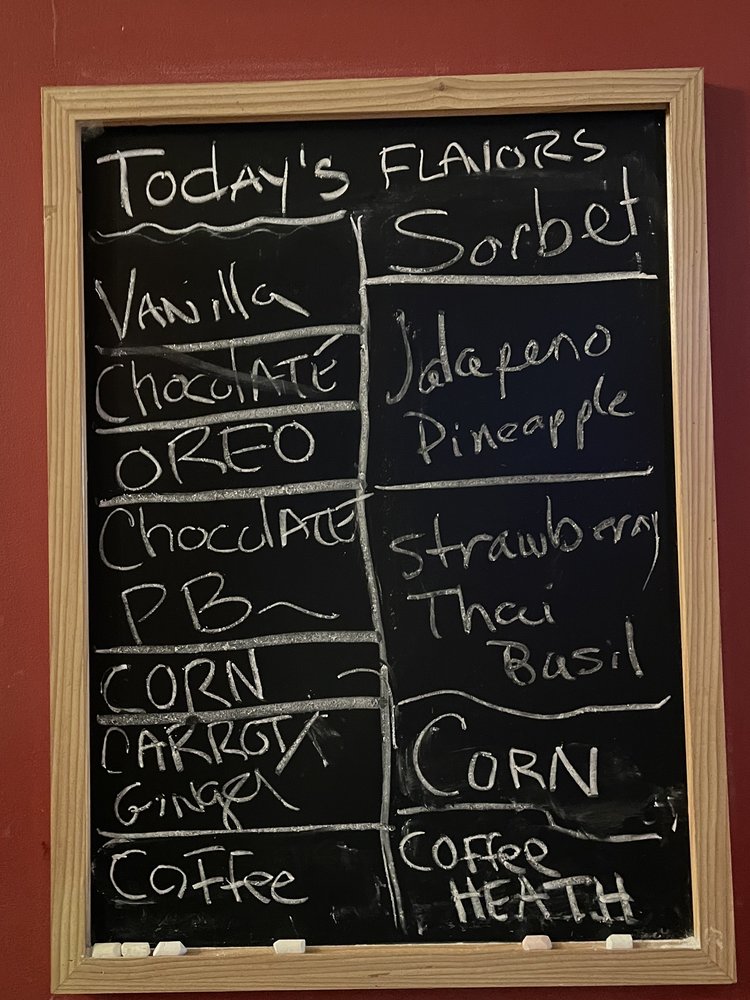 Today's FLAVORS
Vanilla
Chocolate
OREO
Chocolate
PB
CORN
CARROT/
Ginger
Coffee
Sorbet
Jalapeno
Pineapple
Strawberry
Thai
Basil
CORN
Coffee
HEATH